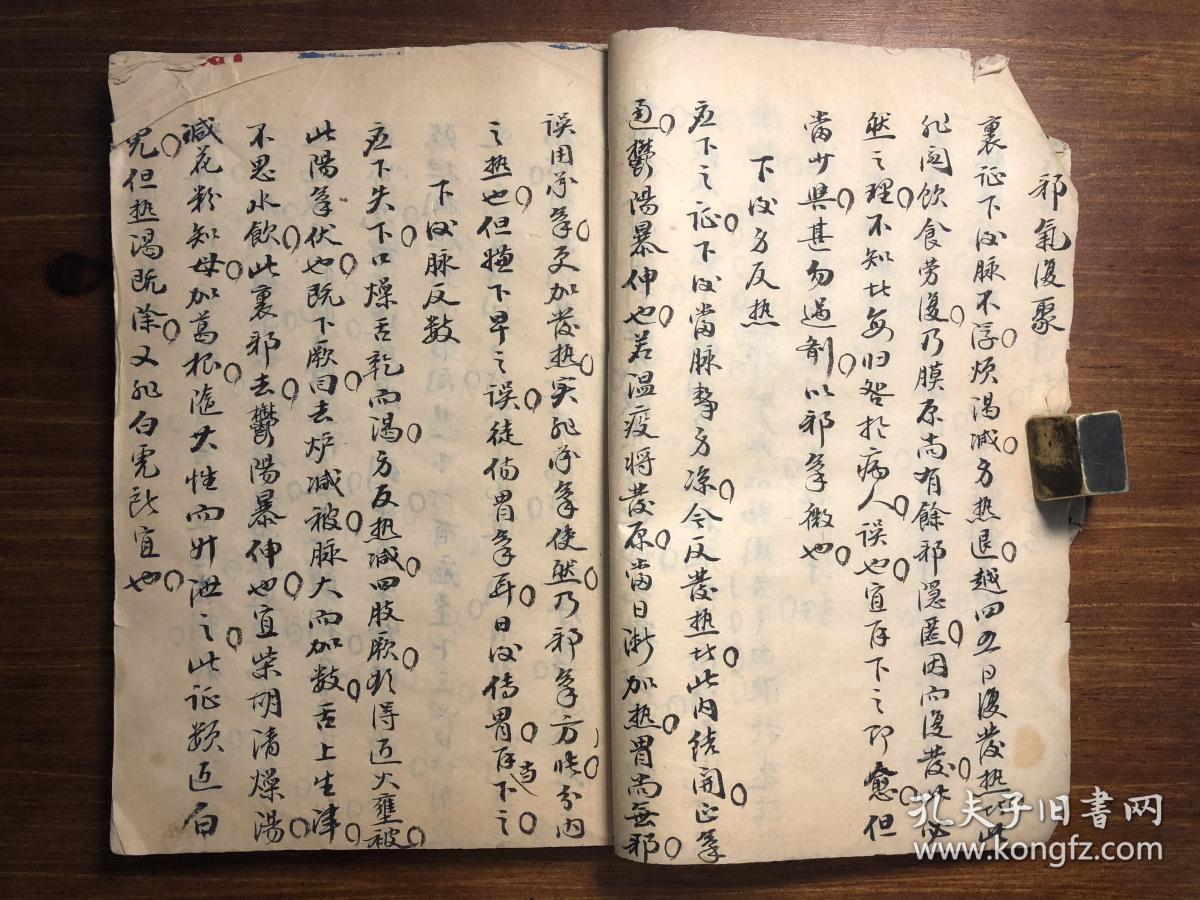 邪氣復聚
裏证下後脉不浮煩渴减身热退越四五日復發热此
非関飲食劳復乃膜原尚有餘邪隱匿因而復發此必
然之理不知此每归咎扵病人误也宜再下之即愈但
當少與甚勿過剂以邪氣微也
下後身反热
应下之证下後當脉静身凉今反發热此内结開正氣
通鬱陽暴伸也若温疫将發原當日漸加热胃尚無邪
误用承氣更加發热实非承氣使然乃邪氣方張分内
之热也但嫌下早之误徒傷胃氣耳日後傳胃再當下之
下後脉反数
应下失下口燥舌乾而渴身反热减四肢厥欲得近火壅被
此陽氣伏也既下厥回去炉减被脉大而加数舌上生津
不思水飲此裏邪去鬱陽暴伸也宜柴胡清燥湯
减花粉知母加葛根隨其性而升泄之此证類近白
虎但热渴既除又非白虎所宜也
孔夫子旧书网
www.kongfz.com